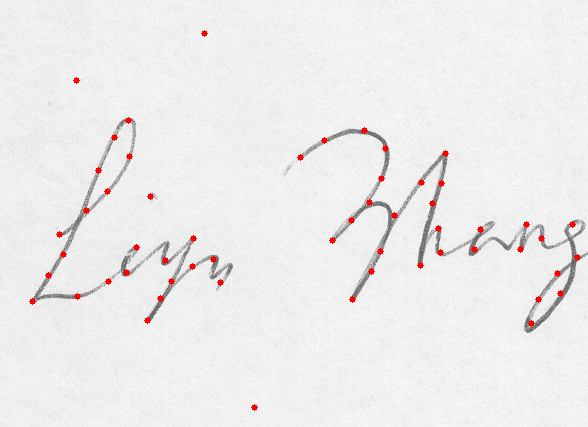 Leyu Zhang